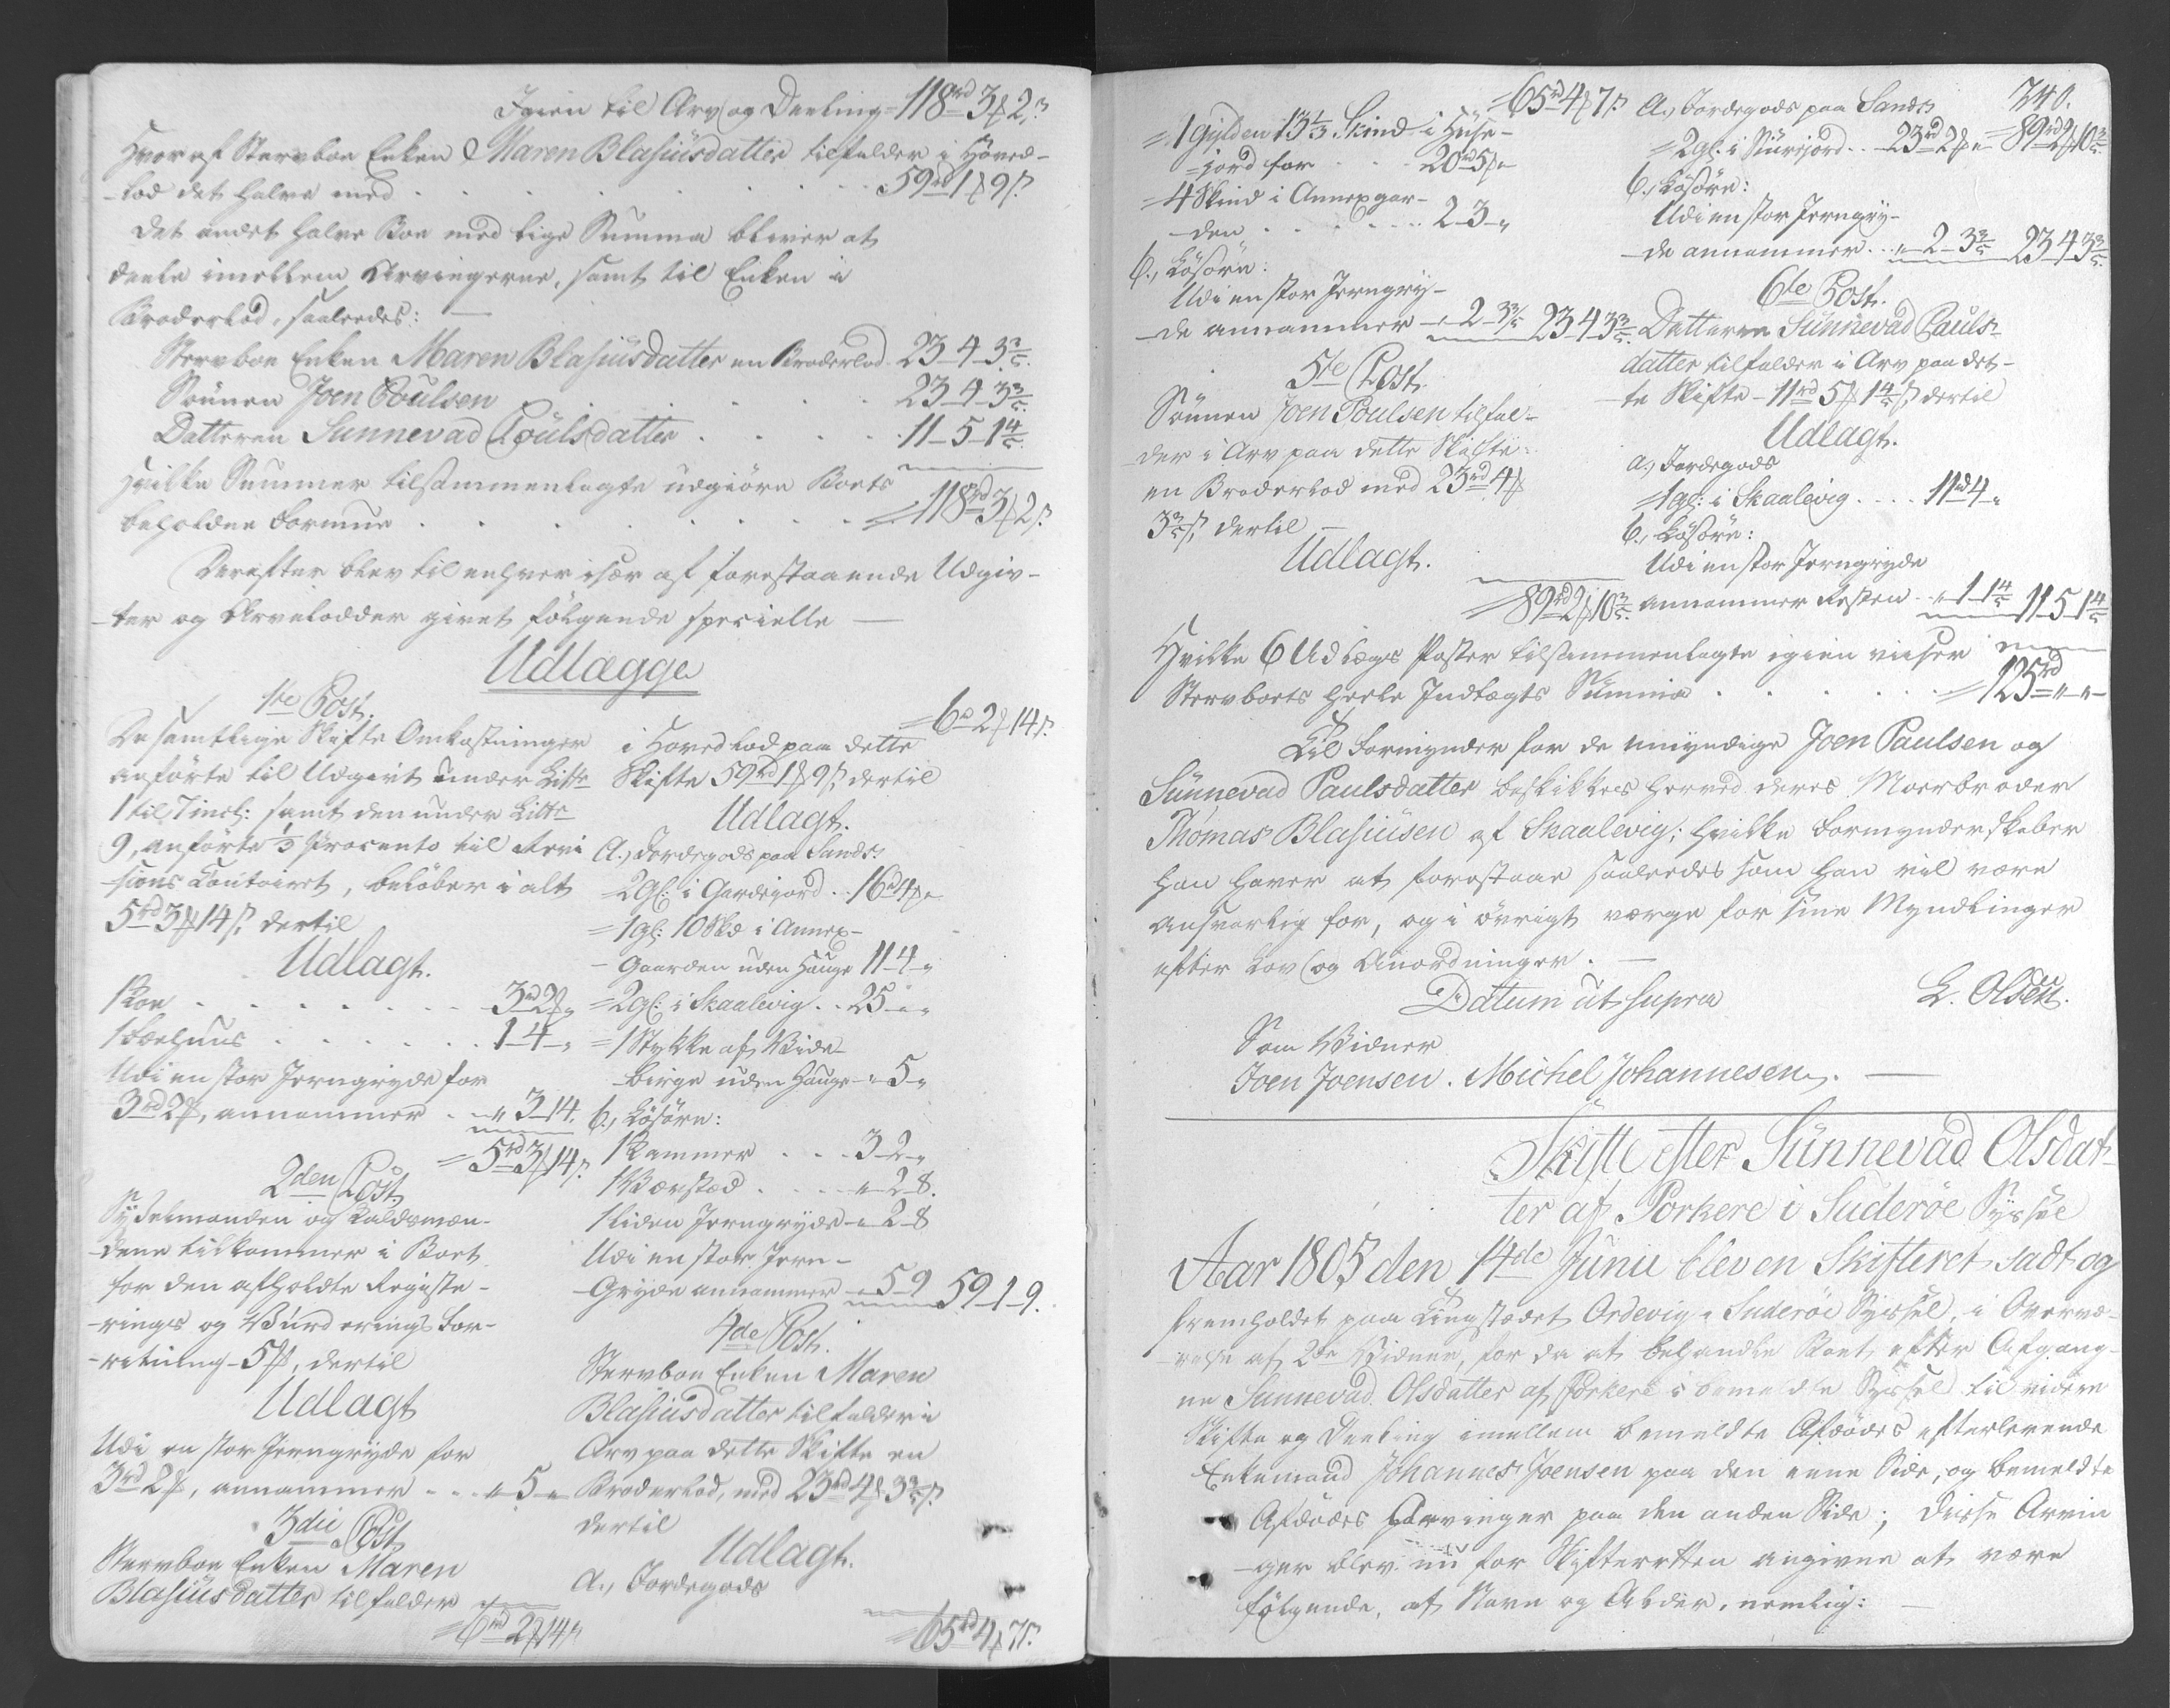 Igien til Arv og Deeling = 118rd 3ß 2ſ?
Hvoraf Stervboe Enken Maren Blasiusdatter tilfalder i Hoved-
-lod det halve med . . . . . 59rd 1 ß 9 ſ.
det andet halve Boe med lige Summa bliver at
deele imellem Arvingerne, samt til Enken i
Broderlod, saaledes: —
Stervboe Enken Maren Blasiusdatter en Broderlod 23-4-3 3/5.
Sönnen Joen Poulsen . . . . . 23-4-3 3/5
Datteren Sunnevad Poulsdatter . . . . 11-5-1 4/5.
Hvilke Summer tilsammenlagte udgiöre Boets
beholdne Formue . . . . . = 118rd 3ß 2ſ.
Derefter blev til enhver især af forestaaende Udgiv-
-ter og Arvelodder givet fölgende specielle —
Udlægge
1te Post.
De samtlige Skifte Omkostninger
anförte til Udgivt under Littr
1 til 7 incl: samt den under Littr
9, anförte 1/3 Procento til Revi
sions Contoiret, belöber i alt
5rd 3ß 14ſ, dertil
Udlagt.
1 Koe . . . . . 3rd 2ß „
1 Fæehuus . . . . . 1-4-„
Udi en stor Jerngryde for
3rd 2ß, annammer . . „ 3-14.
= 5rd 3ß 14ſ.
2den Post.
Sysselmanden og Laldsmæn-
-dene tilkommer i Boet
for den afholdte Registe-
-rings og Vurderings For-
-retning 5ß, dertil
Udlagt
Udi en stor Jerngryde for
3rd 2ß, annammer . . . „ 5 „
3die Post
Stervboe Enken Maren
Blasiusdatter tilfalder
= 6rd 2ß 14ſ
= 6rd 2ß 14ſ.
i Hovedlod paa dette
Skifte 59rd 1ß 9ſ, dertil
Udlagt.
a., Jordegods paa Sand:
= 2gl: i Gardsjord . . 16rd 4ß „
= 1gl: 10 Skd i Annex-
-Gaarden uden Hauge 11-4-„
= 2gl: i Skaalevig . . 25-„-„
= 1 Stykke af Bide-
-birge uden Hauge „ 5 „
b., Lösöre:
1 Kammer . . . 3-2-„
1 Vævstad . . . „ 2-8.
1 liden Jerngryde „ 2-8
Udi en stor Jern-
-Gryde annammer „ 5-9 59-1-9.
4de Post.
Stervboe Enken Maren
Blasiusdatter tilfalder i
Arv paa dette Skifte en
Broderlod, med 23rd 4ß 3 3/5 ſ.
dertil
Udlagt.
a., Jordegods
= 65rd 4ß 7ſ.
= 65rd 4ß 7ſ.
= 1 Gylden 13 1/3 Skind i Huse-
-jord for . . 20rd 5ß „
= 4 Skind i Annexgar-
-den . . . . . 2-3-„
b., Lösöre:
Udi en stor Jerngry-
-de annammer „ 2-3 3/5 23 4 3 3/5.
5te Post.
Sönnen Joen Poulsen tilfal-
der i Arv paa dette Skifte
en Broderlod med 23rd 4ß
3 3/5 ſ, dertil —
Udlagt.
= 89rd 2ß 10 3/5.
240.
a., Jordegods paa Sand:
= 89rd 2ß 10 3/5
= 2gl. i Niursjord . . 23rd 2ß „
b., Lösöre:
Udi en stor Jerngry-
-de annammer . . „ 2-3 3/5 23 4 3 3/5
6te Post.
Datteren Sunnevad Pauls-
datter tilfalder i Arv paa det-
-te Skifte 11rd 5ß 1 4/5 ſ dertil
Udlagt.
a., Jordegods
= 1gl: i Skaalevig . . . 11rd 4 „
b., Lösöre:
Udi en stor Jerngryde
annammer Resten . . „ 1 1 4/5 11-5-1 4/5
Hvilke 6 Udlægs Poster tilsammenlagte igien viser
Stervboets heele Indtægts Summa . . . . . = 125rd „ „
Til Formynder for de umyndige Joen Paulsen og
Sunnevad Paulsdatter beskikkes herved deres Moerbroder
Thomas Blasiusen af Skaalevig; hvilke Formynderskaber
han haver at forestaae saaledes som han vil være
ansvarlig for, og i övrigt værge for sine Myndlinger
efter Lov og Anordninger. —
Datum ut supra
L. Olsen.
Som Vidner
Joen Joensen. Michel Johannesen. —
Skifte efter Sunnevad Olsdat-
ter af Porkere i Suderöe Syssel
Aar 1805 den 14de Junii blev en Skifteret sadt og
fremholdet paa Tingstædet Ordevig i Suderöe Syssel, i Overvæ-
-relse af 2de Vidner, for da at behandle Boet efter Afgang-
ne Sunnevad Olsdatter af Porkere i bemeldte Syssel til videre
Skifte og Deeling imellem bemeldte Afdödes efterlevende
Enkemand Johannes Joensen paa den eene Side, og bemeldte
Afdödes Arvinger paa den anden Side; disse Arvin
-ger blev nu for Skifteretten angivne at være
fölgende, af Navn og Alder, nemlig: —